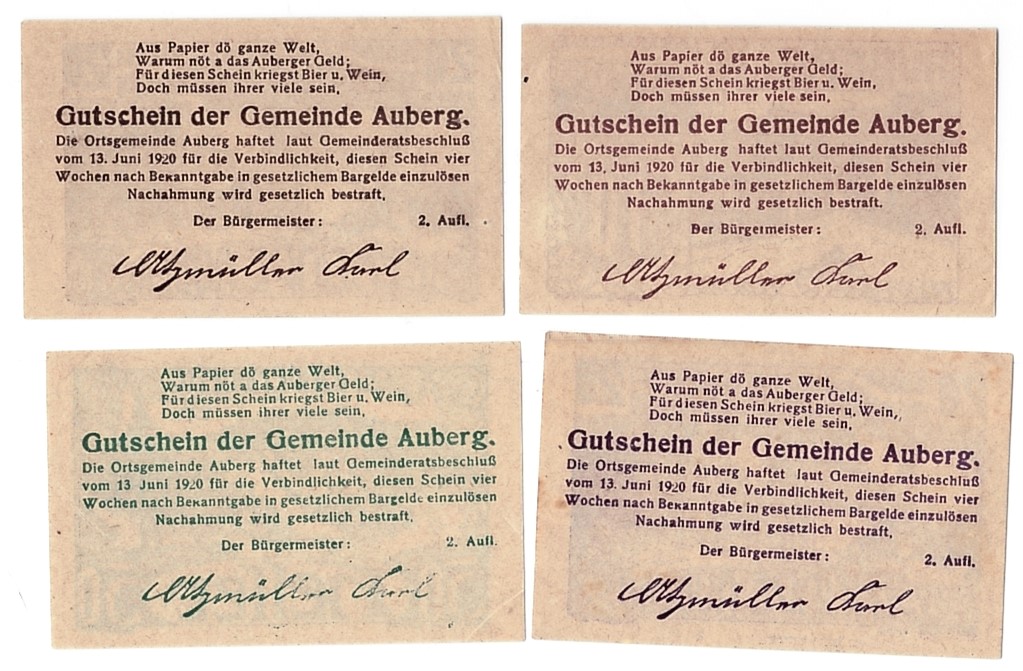 Aus Papier dö ganze Welt,
Warum nöt a das Auberger Geld;
Für diesen Schein kriegst Bier u. Wein,
Doch müssen ihrer viele sein,
Gutschein der Gemeinde Auberg.
Die Ortsgemeinde Auberg haftet laut Gemeinderatsbeschluß
vom 13. Juni 1920 für die Verbindlichkeit, diesen Schein vier
Wochen nach Bekanntgabe in gesetzlichem Bargelde einzulösen
Nachahmung wird gesetzlich bestraft,
Der Bürgermeister: 2. Aufl.
Atzmüller Karl
Aus Papier dö ganze Welt,
Warum nöt a das Auberger Geld;
Für diesen Schein kriegst Bier u. Wein,
Doch müssen ihrer viele sein,
Gutschein der Gemeinde Auberg.
Die Ortsgemeinde Auberg haftet laut Gemeinderatsbeschluß
vom 13, Juni 1920 für die Verbindlichkeit, diesen Schein vier
Wochen nach Bekanntgabe in gesetzlichem Bargelde einzulösen
Nachahmung wird gesetzlich bestraft.
Der Bürgermeister: 2. Aufl.
Atzmüller Karl
Aus Papier dö ganze Welt,
Warum nöt a das Auberger Geld;
Für diesen Schein kriegst Bier u. Wein,
Doch müssen ihrer viele sein,
Gutschein der Gemeinde Auberg.
Die Ortsgemeinde Auberg haftet laut Gemeinderatsbeschluß
vom 13 Juni 1920 für die Verbindlichkeit, diesen Schein vier
Wochen nach Bekanntgabe in gesetzlichem Bargelde einzulösen
Nachahmung wird gesetzlich bestraft,
Der Bürgermeister: 2. Aufl.
Atzmüller Karl
Aus Papier dö ganze Welt,
Warum nöt a das Auberger Geld;
Für diesen Schein kriegst Bier u. Wein,
Doch müssen ihrer viele sein,
Gutschein der Gemeinde Auberg.
Die Ortsgemeinde Auberg haftet laut Gemeinderatsbeschluß
vom 13. Juni 1920 für die Verbindlichkeit, diesen Schein vier
Wochen nach Bekanntgabe in gesetzlichem Bargelde einzulösen
Nachahmung wird gesetzlich bestraft,
Der Bürgermeister: 2. Aufl.
Atzmüller Karl